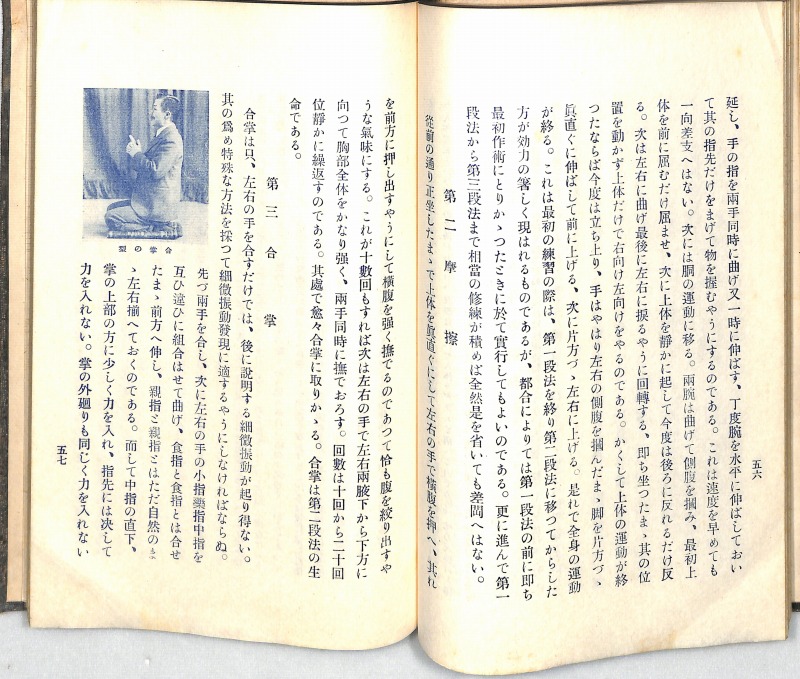 延し、手の指を兩手同時に曲げ又一時に伸ばす、丁度腕を水平に伸ばしておい
て其の指先だけをまげて物を握むやうにするのである。これは速度を早めても
一向差支へはない。次には胴の運動に移る。兩腕は曲げて側腹を掴み、最初上
体を前に屈むだけ屈ませ、次に上体を靜かに起して今度は後ろに反れるだけ反
る。次は左右に曲げ最後に左右に捩るやうに回轉する、即ち坐つたまゝ其の位
置を動かず上体だけで右向け左向けをやるのである。かくして上体の運動が終
つたならば今度は立ち上り、手はやはり左右の側腹を掴んだまゝ脚を片方づゝ
眞直ぐに伸ばして前に上げる、次に片方づゝ左右に上げる。是れで全身の運動
が終る。これは最初の練習の際は、第一段法を終り第二段法に移つてからした
方が効力の著しく現はれるものであるが、都合によりては第一段法の前に即ち
最初作術にとりかゝつたときに於て實行してもよいのである。更に進んで第一
段法から第三段法まで相當の修練が積めば全然是を省いても差閊へはない。
第二 摩擦
從前の通り正坐したまゝで上体を眞直ぐにして左右の手で横腹を押へ、其れ
五六
を前方に押し出すやうにして横腹を強く撫でるのであつて恰も腹を絞り出すや
うな氣味にする。これが十數回もすれば次は左右の手で左右兩腋下から下方に
向つて胸部全体をかなり強く、兩手同時に撫でおろす。回數は十回から二十回
位靜かに繰返すのである。其處で愈々合掌に取りかゝる。合掌は第二段法の生
命である。
第三 合掌
合掌は只、左右の手を合すだけでは、後に説明する細微振動が起り得ない。
其の爲め特殊な方法を採つて細微振動發現に適するやうにしなければならぬ。
先づ兩手を合し、次に左右の手の小指藥指中指を
互ひ違ひに組合はせて曲げ、食指と食指とは合せ
たまゝ前方へ伸し、親指と親指とはただ自然のま
ゝ左右揃へておくのである。而して中指の直下、
掌の上部の方に少しく力を入れ、指先には決して
力を入れない。掌の外廻りも同じく力を入れない
合掌の型
五七